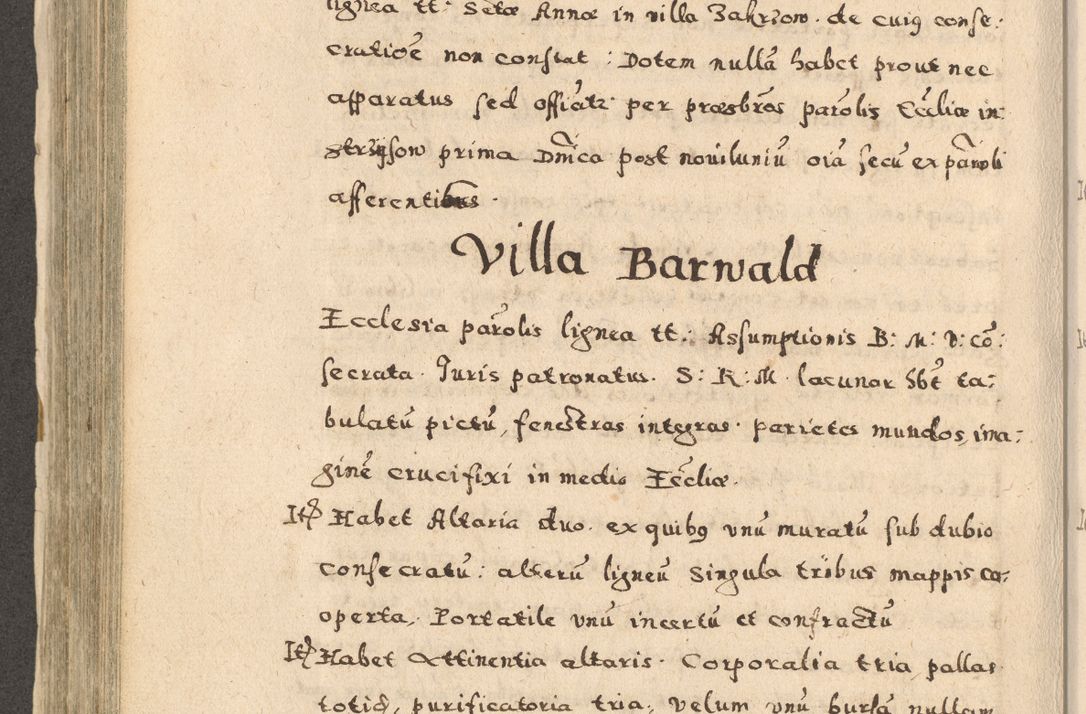 lignea tt: Sctæ Annæ in villa Zakrzow. de cuiꝯ conse:
cratiõe non constat: Dotem nullã habet prout nec
apparatus sed officatr per præsbros parõlis Ecćliæ in
strijsow prima Dnica post noviluniũ oia secũ ex pãroli
afferentibus.
Villa Barwald
Ecclesia parõlis lignea tt: Assumptionis B: M: V: cõ:
secrata. Juris patronatus. S: R: M. lacunar hbet ta:
bulatũ pictũ, fenestras integras. parietes mundos, ima:
ginẽ crucifixi in medio Ecćliæ.
Itẽ Habet Altaria duo. ex quibꝯ vnũ muratũ sub dubio
consecratũ: alterũ ligneũ singula tribus mappis co:
operta, Portatile vnũ incertũ et confractũ
Itẽ Habet Attinentia altaris. Corporalia tria, pallas
totid, purificatoria tria, velum vnũ bursã nullam